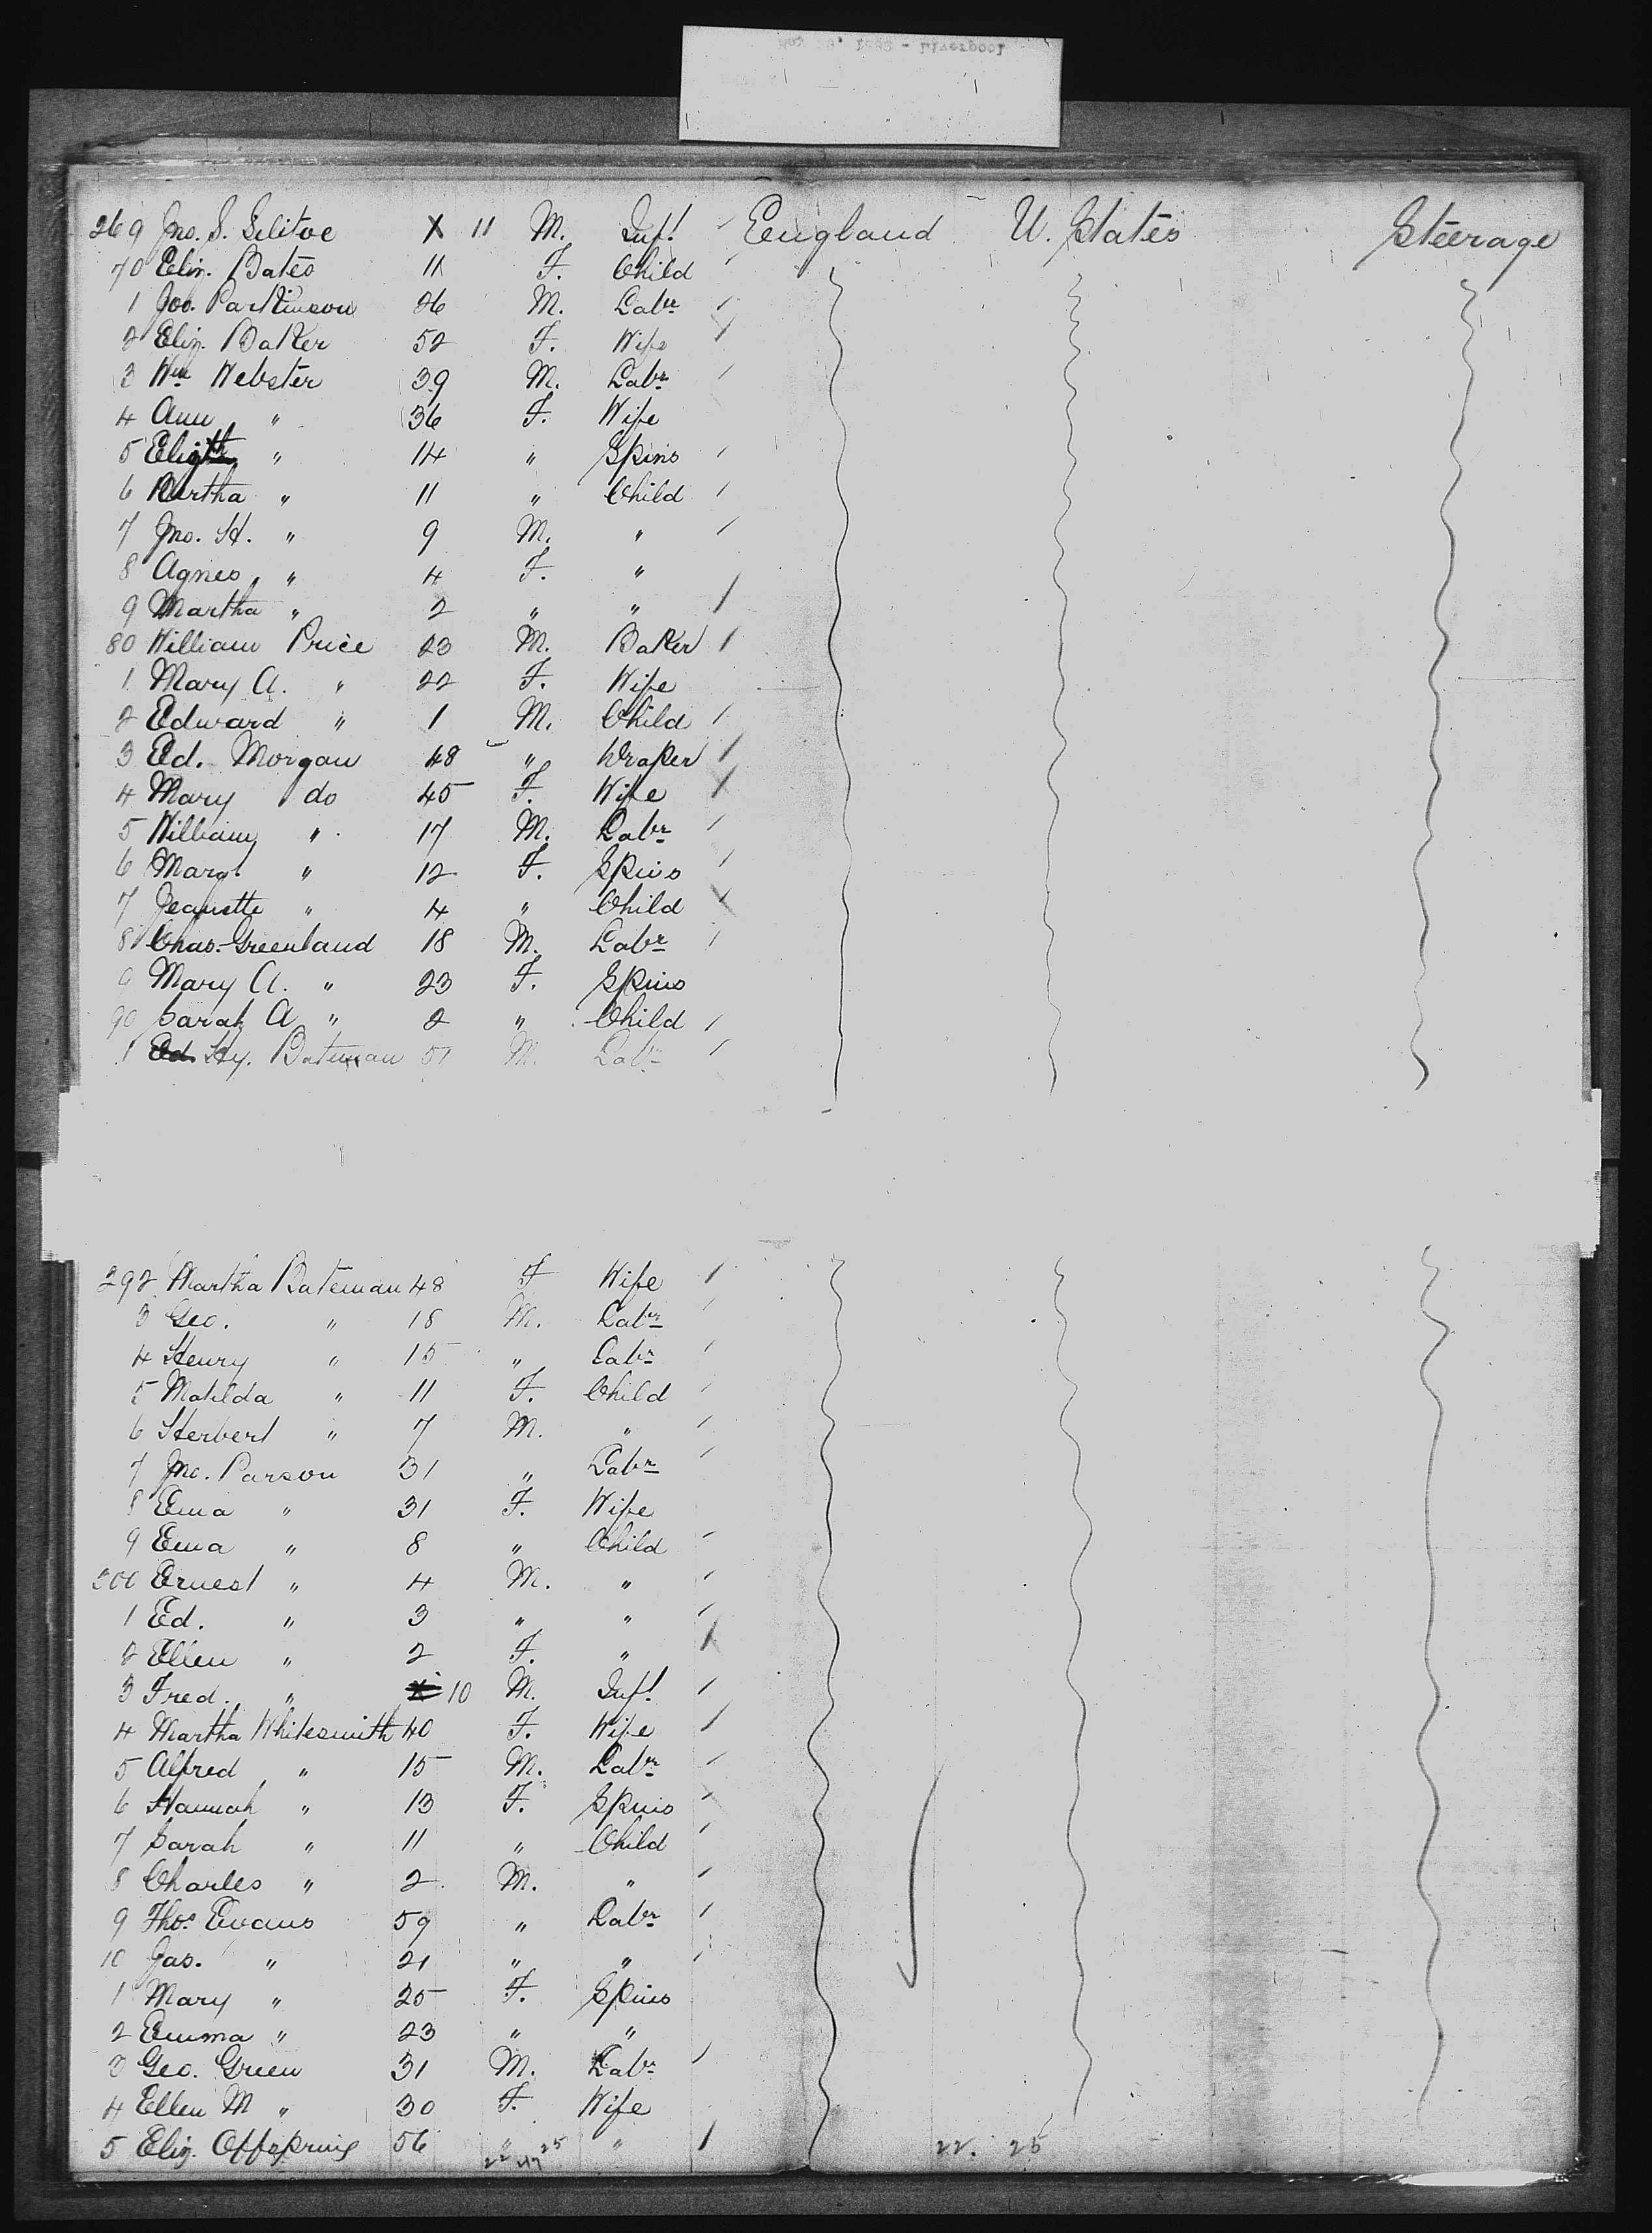 269 Jno. S. Gelitoe X 11 M. Inft England U. States Steerage
70 Eliz. Bates 11 F. Child
1 Joo. Parkinson 26 M. Labr
2 Eliz. Baker 52 F. Wife
3 Wm Webster 39 M. Labr
4 Ann " 36 F. Wife
5 Elizth " 14 " Spins
6 Bertha " 11 " Child
7 Jno. H. " 9 M. "
8 Agnes " 4 F. "
9 Martha " 2 " "
80 William Price 23 M. Baker
1 Mary A. " 22 F. Wife
2 Edward " 1 M. Child
3 Ed. Morgan 48 " Draper
4 Mary do 45 F. Wife
5 William " 17 M. Labr
6 Margt " 12 F. Spins
7 Jeanette " 4 " Child
8 Chas. Greenland 18 M. Labr
9 Mary A. " 23 F. Spins
90 Sarah A " 2 " Child
1 Ed. Hy. Bateman 51 M. Labr
292 Martha Bateman 48 F Wife
3 Geo. " 18 M. Labr
4 Henry " 15 " Labr
5 Matilda " 11 F. Child
6 Herbert " 7 M. "
7 Jno. Parson 31 " Labr
8 Ema " 31 F. Wife
9 Ema " 8 " Child
300 Ernest " 4 M. "
1 Ed. " 3 " "
2 Ellen " 2 F. "
3 Fred. " 10 M. Inft
4 Martha Whitesmith 40 F. Wife
5 Alfred " 15 M. Labr
6 Hannah " 13 F. Spins
7 Sarah " 11 " Child
8 Charles " 2 M. "
9 Thos. Evans 59 " Labr
10 Jas. " 21 " "
1 Mary " 25 F. Spins
2 Emma " 23 " "
3 Geo. Green 31 M. Labr
4 Ellen M " 30 F. Wife
5 Eliz. Offspring 56 " "
22 47 25 22. 25